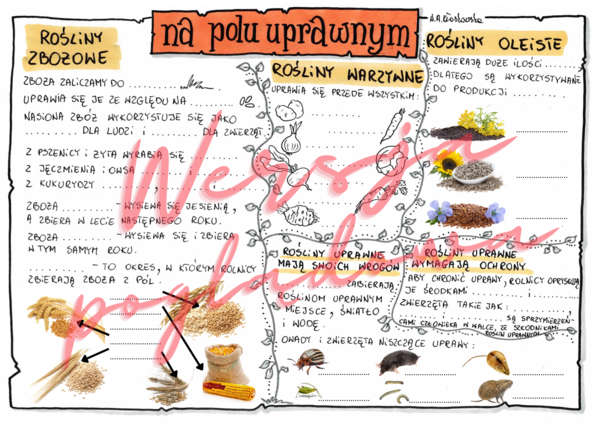 na polu uprawnym
ROŚLINY
ZBOŻOWE
ZBOŻA ZALICZAMY DO ..........
UPRAWIA SIĘ JE ZE WZGLĘDU NA .........
NASIONA ZBÓŻ WYKORZYSTUJE SIĘ JAKO
.......... DLA LUDZI I .......... DLA ZWIERZĄT.
Z PSZENICY I ŻYTA WYRABIA SIĘ ..........
Z JĘCZMIENIA I OWSA ..........
Z KUKURYDZY ..........
ZBOŻA .......... - WYSIEWA SIĘ JESIENIĄ,
A ZBIERA W LECIE NASTĘPNEGO ROKU.
ZBOŻA .......... - WYSIEWA SIĘ I ZBIERA
W TYM SAMYM ROKU.
.......... - TO OKRES, W KTÓRYM ROLNICY
ZBIERAJĄ ZBOŻA Z PÓL.
ROŚLINY WARZYWNE
UPRAWIA SIĘ PRZEDE WSZYSTKIM:
ROŚLINY OLEISTE
ZAWIERAJĄ DUŻE ILOŚCI ..........
DLATEGO SĄ WYKORZYSTYWANE
DO PRODUKCJI ..........
ROŚLINY UPRAWNE
MAJĄ SWOICH WROGÓW
.......... ZABIERAJĄ
ROŚLINOM UPRAWNYM
MIEJSCE, ŚWIATŁO
I WODĘ.
OWADY I ZWIERZĘTA NISZCZĄCE UPRAWY:
ROŚLINY UPRAWNE
WYMAGAJĄ OCHRONY
ABY CHRONIĆ UPRAWY, ROLNICY OPRYSKUJĄ
JE ŚRODKAMI ..........
ZWIERZĘTA TAKIE JAK:
.......... SĄ SPRZYMIERZEŃ-
CAMI CZŁOWIEKA W WALCE ZE SZKODNIKAMI
ROŚLIN UPRAWNYCH.
Wersja
poglądowa